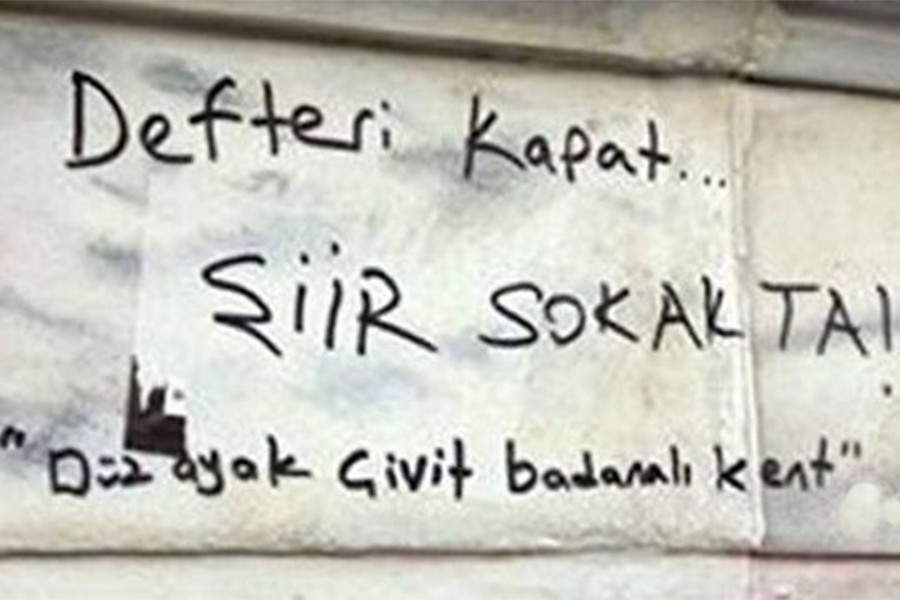 Defteri Kapat...
ŞiiR SOKAKTA!
"Düz ayak Çivit badanalı kent"